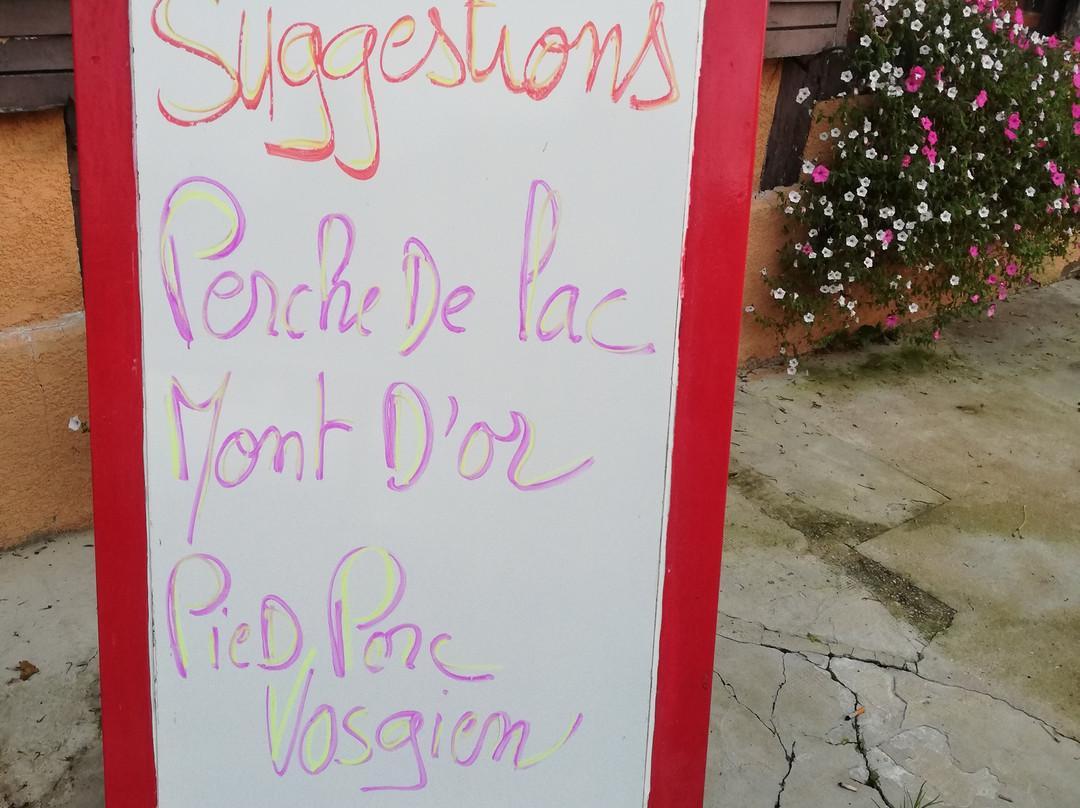 Suggestions
Perche De Lac
Mont D'or
PieD Porc
Vosgien